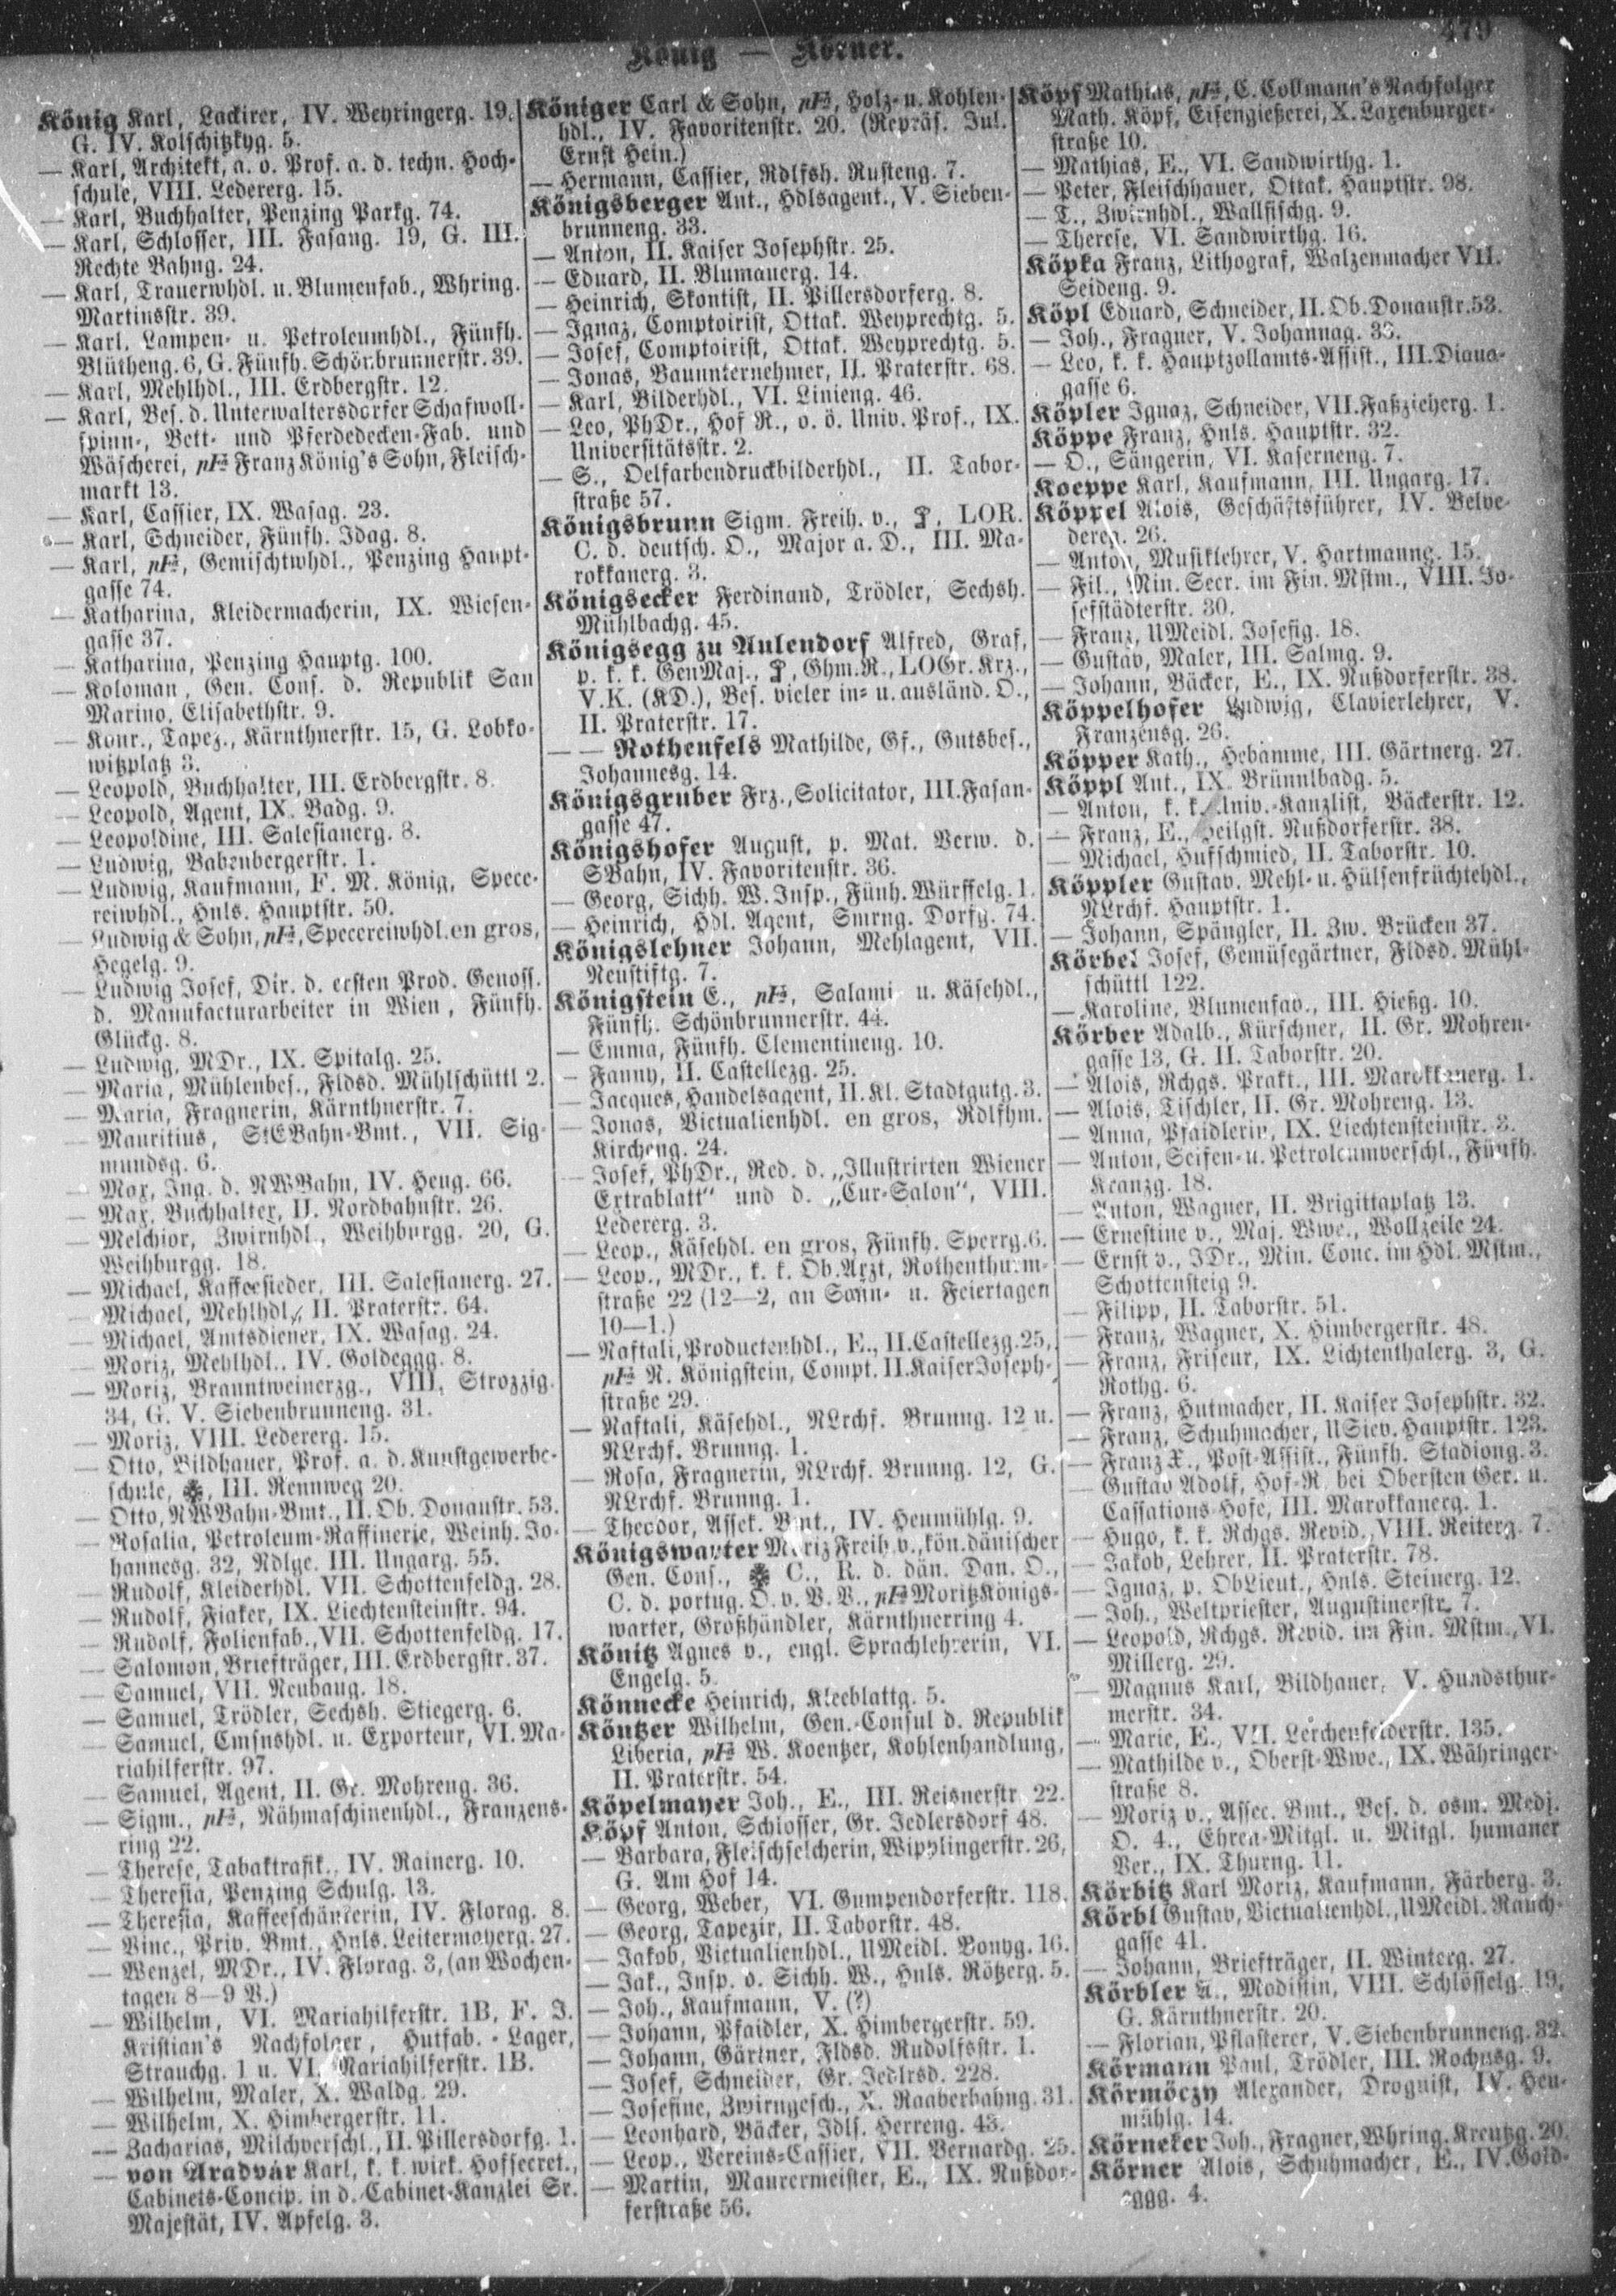 479
König — Körner.
König Karl, Lackirer, IV. Weyringerg. 19,
G. IV. Kolschitzkyg. 5.
— Karl, Architekt, a. o. Prof. a. d. techn. Hoch-
schule, VIII. Ledererg. 15.
— Karl, Buchhalter, Penzing Parkg. 74.
— Karl, Schlosser, III. Fasang. 19, G. III.
Rechte Bahng. 24.
— Karl, Trauerwhdl. u. Blumenfab., Whring.
Martinsstr. 39.
— Karl, Lampen- u. Petroleumhdl., Fünfh.
Blütheng. 6, G. Fünfh. Schönbrunnerstr. 39.
— Karl, Mehlhdl., III. Erdbergstr. 12.
— Karl, Bes. d. Unterwaltersdorfer Schafwoll-
spinn-, Bett- und Pferdedecken-Fab. und
Wäscherei, pFa Franz König's Sohn, Fleisch-
markt 13.
— Karl, Cassier, IX. Wasag. 23.
— Karl, Schneider, Fünfh. Idag. 8.
— Karl, pFa, Gemischtwhdl., Penzing Haupt-
gasse 74.
— Katharina, Kleidermacherin, IX. Wiesen-
gasse 37.
— Katharina, Penzing Hauptg. 100.
— Koloman, Gen. Cons. d. Republik San
Marino, Elisabethstr. 9.
— Konr., Tapez., Kärnthnerstr. 15, G. Lobko-
witzplatz 3.
— Leopold, Buchhalter, III. Erdbergstr. 8.
— Leopold, Agent, IX. Badg. 9.
— Leopoldine, III. Salesianerg. 8.
— Ludwig, Babenbergerstr. 1.
— Ludwig, Kaufmann, F. M. König, Spece-
reiwhdl., Hnls. Hauptstr. 50.
— Ludwig & Sohn, pFa, Specereiwhdl. en gros,
Hegelg. 9.
— Ludwig Josef, Dir. d. ersten Prod. Genoss.
d. Manufacturarbeiter in Wien, Fünfh.
Glückg. 8.
— Ludwig, MDr., IX. Spitalg. 25.
— Maria, Mühlenbes., Fldsd. Mühlschüttl 2.
— Maria, Fragnerin, Kärnthnerstr. 7.
— Mauritius, StEBahn-Bmt., VII. Sig-
mundsg. 6.
— Max, Ing. d. NWBahn, IV. Heug. 66.
— Max, Buchhalter, II. Nordbahnstr. 26.
— Melchior, Zwirnhdl., Weihburgg. 20, G.
Weihburgg. 18.
— Michael, Kaffeesieder, III. Salesianerg. 27.
— Michael, Mehlhdl., II. Praterstr. 64.
— Michael, Amtsdiener, IX. Wasag. 24.
— Moriz, Mehlhdl., IV. Goldeggg. 8.
— Moriz, Branntweinerzg., VIII. Strozzig.
34, G. V. Siebenbrunneng. 31.
— Moriz, VIII. Ledererg. 15.
— Otto, Bildhauer, Prof. a. d. Kunstgewerbe-
schule, III. Rennweg 20.
— Otto, NWBahn-Bmt., II. Ob. Donaustr. 53.
— Rosalia, Petroleum-Raffinerie, Weinh. Jo-
hannesg. 32, Ndlge. III. Ungarg. 55.
— Rudolf, Kleiderhdl. VII. Schottenfeldg. 28.
— Rudolf, Fiaker, IX. Liechtensteinstr. 94.
— Rudolf, Folienfab., VII. Schottenfeldg. 17.
— Salomon, Briefträger, III. Erdbergstr. 37.
— Samuel, VII. Neubaug. 18.
— Samuel, Trödler, Sechsh. Stiegerg. 6.
— Samuel, Cmsnshdl. u. Exporteur, VI. Ma-
riahilferstr. 97.
— Samuel, Agent, II. Gr. Mohreng. 36.
— Sigm., pFa, Nähmaschinenhdl., Franzens-
ring 22.
— Therese, Tabaktrafik., IV. Rainerg. 10.
— Theresia, Penzing Schulg. 13.
— Theresia, Kaffeeschänkerin, IV. Florag. 8.
— Vinc., Priv. Bmt., Hnls. Leitermayerg. 27.
— Wenzel, MDr., IV. Florag. 3, (an Wochen-
tagen 8—9 V.)
— Wilhelm, VI. Mariahilferstr. 1B, F. J.
Kristian's Nachfolger, Hutfab. - Lager,
Strauchg. 1 u. VI. Mariahilferstr. 1B.
— Wilhelm, Maler, X. Waldg. 29.
— Wilhelm, X. Himbergerstr. 11.
— Zacharias, Milchverschl., II. Pillersdorfg. 1.
— von Aradvár Karl, k. k. wirk. Hofsecret.,
Cabinets-Concip. in d. Cabinet-Kanzlei Sr.
Majestät, IV. Apfelg. 3.
Königer Carl & Sohn, pFa, Holz- u. Kohlen-
hdl., IV. Favoritenstr. 20. (Repräs. Jul.
Ernst Hein.)
— Hermann, Cassier, Rdlfsh. Rusteng. 7.
Königsberger Ant., Hdlsagent., V. Sieben-
brunneng. 33.
— Anton, II. Kaiser Josephstr. 25.
— Eduard, II. Blumauerg. 14.
— Heinrich, Skontist, II. Pillersdorferg. 8.
— Ignaz, Comptoirist, Ottak. Weyprechtg. 5.
— Josef, Comptoirist, Ottak. Weyprechtg. 5.
— Jonas, Bauunternehmer, II. Praterstr. 68.
— Karl, Bilderhdl., VI. Linieng. 46.
— Leo, PhDr., Hof R., o. ö. Univ. Prof., IX.
Universitätsstr. 2.
— S., Oelfarbendruckbilderhdl., II. Tabor-
straße 57.
Königsbrunn Sigm. Freih. v., LOR.
C. d. deutsch. O., Major a. D., III. Ma-
rokkanerg. 3.
Königsecker Ferdinand, Trödler, Sechsh.
Mühlbachg. 45.
Königsegg zu Aulendorf Alfred, Graf,
p. k. k. GenMaj., Ghm.R., LOGr.Krz.,
V.K. (KD.), Bes. vieler in- u. ausländ. O.,
II. Praterstr. 17.
— — Rothenfels Mathilde, Gf., Gutsbes.,
Johannesg. 14.
Königsgruber Frz., Solicitator, III. Fasan-
gasse 47.
Königshofer August, p. Mat. Verw. d.
SBahn, IV. Favoritenstr. 36.
— Georg, Sichh. W. Insp., Fünh. Würffelg. 1.
— Heinrich, Hdl. Agent, Smrng. Dorfg. 74.
Königslehner Johann, Mehlagent, VII.
Neustiftg. 7.
Königstein E., pFa, Salami u. Käsehdl.,
Fünfh. Schönbrunnerstr. 44.
— Emma, Fünfh. Clementineng. 10.
— Fanny, II. Castellezg. 25.
— Jacques, Handelsagent, II. Kl. Stadtgutg. 3.
— Jonas, Victualienhdl. en gros, Rdlfhm.
Kircheng. 24.
— Josef, PhDr., Red. d. „Illustrirten Wiener
Extrablatt" und d. „Cur-Salon", VIII.
Ledererg. 3.
— Leop., Käsehdl. en gros, Fünfh. Sperrg. 6.
— Leop., MDr., k. k. Ob. Arzt, Rothenthurm-
straße 22 (12—2, an Sonn- u. Feiertagen
10—1.)
— Naftali, Productenhdl., E., II. Castellezg. 25,
pFa N. Königstein, Compt. II. Kaiser Joseph-
straße 29.
— Naftali, Käsehdl., NLrchf. Brunng. 12 u.
NLrchf. Brunng. 1.
— Rosa, Fragnerin, NLrchf. Brunng. 12, G.
NLrchf. Brunng. 1.
— Theodor, Assek. Bmt., IV. Heumühlg. 9.
Königswarter Moriz Freih. v., kön. dänischer
Gen. Cons., C., R. d. dän. Dan. O.,
C. d. portug. O. v. V. V., pFa Moritz Königs-
warter, Großhändler, Kärnthnerring 4.
Könitz Agnes v., engl. Sprachlehrerin, VI.
Engelg. 5.
Könnecke Heinrich, Kleeblattg. 5.
Köntzer Wilhelm, Gen.-Consul d. Republik
Liberia, pFa W. Koentzer, Kohlenhandlung,
II. Praterstr. 54.
Köpelmayer Joh., E., III. Reisnerstr. 22.
Köpf Anton, Schlosser, Gr. Jedlersdorf 48.
— Barbara, Fleischselcherin, Wipplingerstr. 26,
G. Am Hof 14.
— Georg, Weber, VI. Gumpendorferstr. 118.
— Georg, Tapezir, II. Taborstr. 48.
— Jakob, Victualienhdl., UMeidl. Bonyg. 16.
— Jak., Insp. d. Sichh. W., Hnls. Rötzerg. 5.
— Joh., Kaufmann, V. (?)
— Johann, Pfaidler, X. Himbergerstr. 59.
— Johann, Gärtner, Fldsd. Rudolfsstr. 1.
— Josef, Schneider, Gr. Jedlrsd. 228.
— Josefine, Zwirngesch., X. Raaberbahng. 31.
— Leonhard, Bäcker, Jdlf. Herreng. 43.
— Leop., Vereins-Cassier, VII. Bernardg. 25.
— Martin, Maurermeister, E., IX. Nußdor-
ferstraße 56.
Köpf Mathias, pFa, C. Collmann's Nachfolger
Math. Köpf, Eisengießerei, X. Laxenburger-
straße 10.
— Mathias, E., VI. Sandwirthg. 1.
— Peter, Fleischhauer, Ottak. Hauptstr. 98.
— T., Zwirnhdl., Wallfischg. 9.
— Therese, VI. Sandwirthg. 16.
Köpka Franz, Lithograf, Walzenmacher VII.
Seideng. 9.
Köpl Eduard, Schneider, II. Ob. Donaustr. 53.
— Joh., Fragner, V. Johannag. 33.
— Leo, k. k. Hauptzollamts-Assist., III. Diana-
gasse 6.
Köpler Ignaz, Schneider, VII. Faßzieherg. 1.
Köppe Franz, Hnls. Hauptstr. 32.
— O., Sängerin, VI. Kaserneng. 7.
Koeppe Karl, Kaufmann, III. Ungarg. 17.
Köppel Alois, Geschäftsführer, IV. Belve-
dereg. 26.
— Anton, Musiklehrer, V. Hartmanng. 15.
— Fil., Min. Secr. im Fin. Mstm., VIII. Jo-
sefstädterstr. 30.
— Franz, UMeidl. Josefig. 18.
— Gustav, Maler, III. Salmg. 9.
— Johann, Bäcker, E., IX. Nußdorferstr. 38.
Köppelhofer Ludwig, Clavierlehrer, V.
Franzensg. 26.
Köpper Kath., Hebamme, III. Gärtnerg. 27.
Köppl Ant., IX. Brünnlbadg. 5.
— Anton, k. k. Univ.-Kanzlist, Bäckerstr. 12.
— Franz, E., Heilgst. Nußdorferstr. 38.
— Michael, Hufschmied, II. Taborstr. 10.
Köppler Gustav, Mehl- u. Hülsenfrüchtehdl.,
NLrchf. Hauptstr. 1.
— Johann, Spängler, II. Zw. Brücken 37.
Körbel Josef, Gemüsegärtner, Fldsd. Mühl-
schüttl 122.
— Karoline, Blumenfab., III. Hießg. 10.
Körber Adalb., Kürschner, II. Gr. Mohren-
gasse 13, G. II. Taborstr. 20.
— Alois, Rchgs. Prakt., III. Marokkanerg. 1.
— Alois, Tischler, II. Gr. Mohreng. 13.
— Anna, Pfaidlerin, IX. Liechtensteinstr. 3.
— Anton, Seifen- u. Petroleumverschl., Fünfh.
Kranzg. 18.
— Anton, Wagner, II. Brigittaplatz 13.
— Ernestine v., Maj. Wwe., Wollzeile 24.
— Ernst v., JDr., Min. Conc. im Hdl. Mstm.,
Schottensteig 9.
— Filipp, II. Taborstr. 51.
— Franz, Wagner, X. Himbergerstr. 48.
— Franz, Friseur, IX. Lichtenthalerg. 3, G.
Rothg. 6.
— Franz, Hutmacher, II. Kaiser Josephstr. 32.
— Franz, Schuhmacher, USiev. Hauptstr. 123.
— Franz X., Post-Assist., Fünfh. Stadiong. 3.
— Gustav Adolf, Hof-R. bei Obersten Ger. u.
Cassations-Hofe, III. Marokkanerg. 1.
— Hugo, k. k. Rchgs. Revid., VIII. Reiterg. 7.
— Jakob, Lehrer, II. Praterstr. 78.
— Ignaz, p. ObLieut., Hnls. Steinerg. 12.
— Joh., Weltpriester, Augustinerstr. 7.
— Leopold, Rchgs. Revid. im Fin. Mstm., VI.
Millerg. 29.
— Magnus Karl, Bildhauer, V. Hundsthur-
merstr. 34.
— Marie, E., VII. Lerchenfelderstr. 135.
— Mathilde v., Oberst-Wwe., IX. Währinger-
straße 8.
— Moriz v., Assec. Bmt., Bes. d. osm. Medj.
O. 4., Ehren-Mitgl. u. Mitgl. humaner
Ver., IX. Thurng. 11.
Körbitz Karl Moriz, Kaufmann, Färberg. 3.
Körbl Gustav, Victualienhdl., UMeidl. Rauch-
gasse 41.
— Johann, Briefträger, II. Winterg. 27.
Körbler A., Modistin, VIII. Schlösselg. 19,
G. Kärnthnerstr. 20.
— Florian, Pflasterer, V. Siebenbrunneng. 32.
Körmann Paul, Trödler, III. Rochusg. 9.
Körmöczy Alexander, Droguist, IV. Heu-
mühlg. 14.
Körneker Joh., Fragner, Whring. Kreutzg. 20.
Körner Alois, Schuhmacher, E., IV. Gold-
eggg. 4.